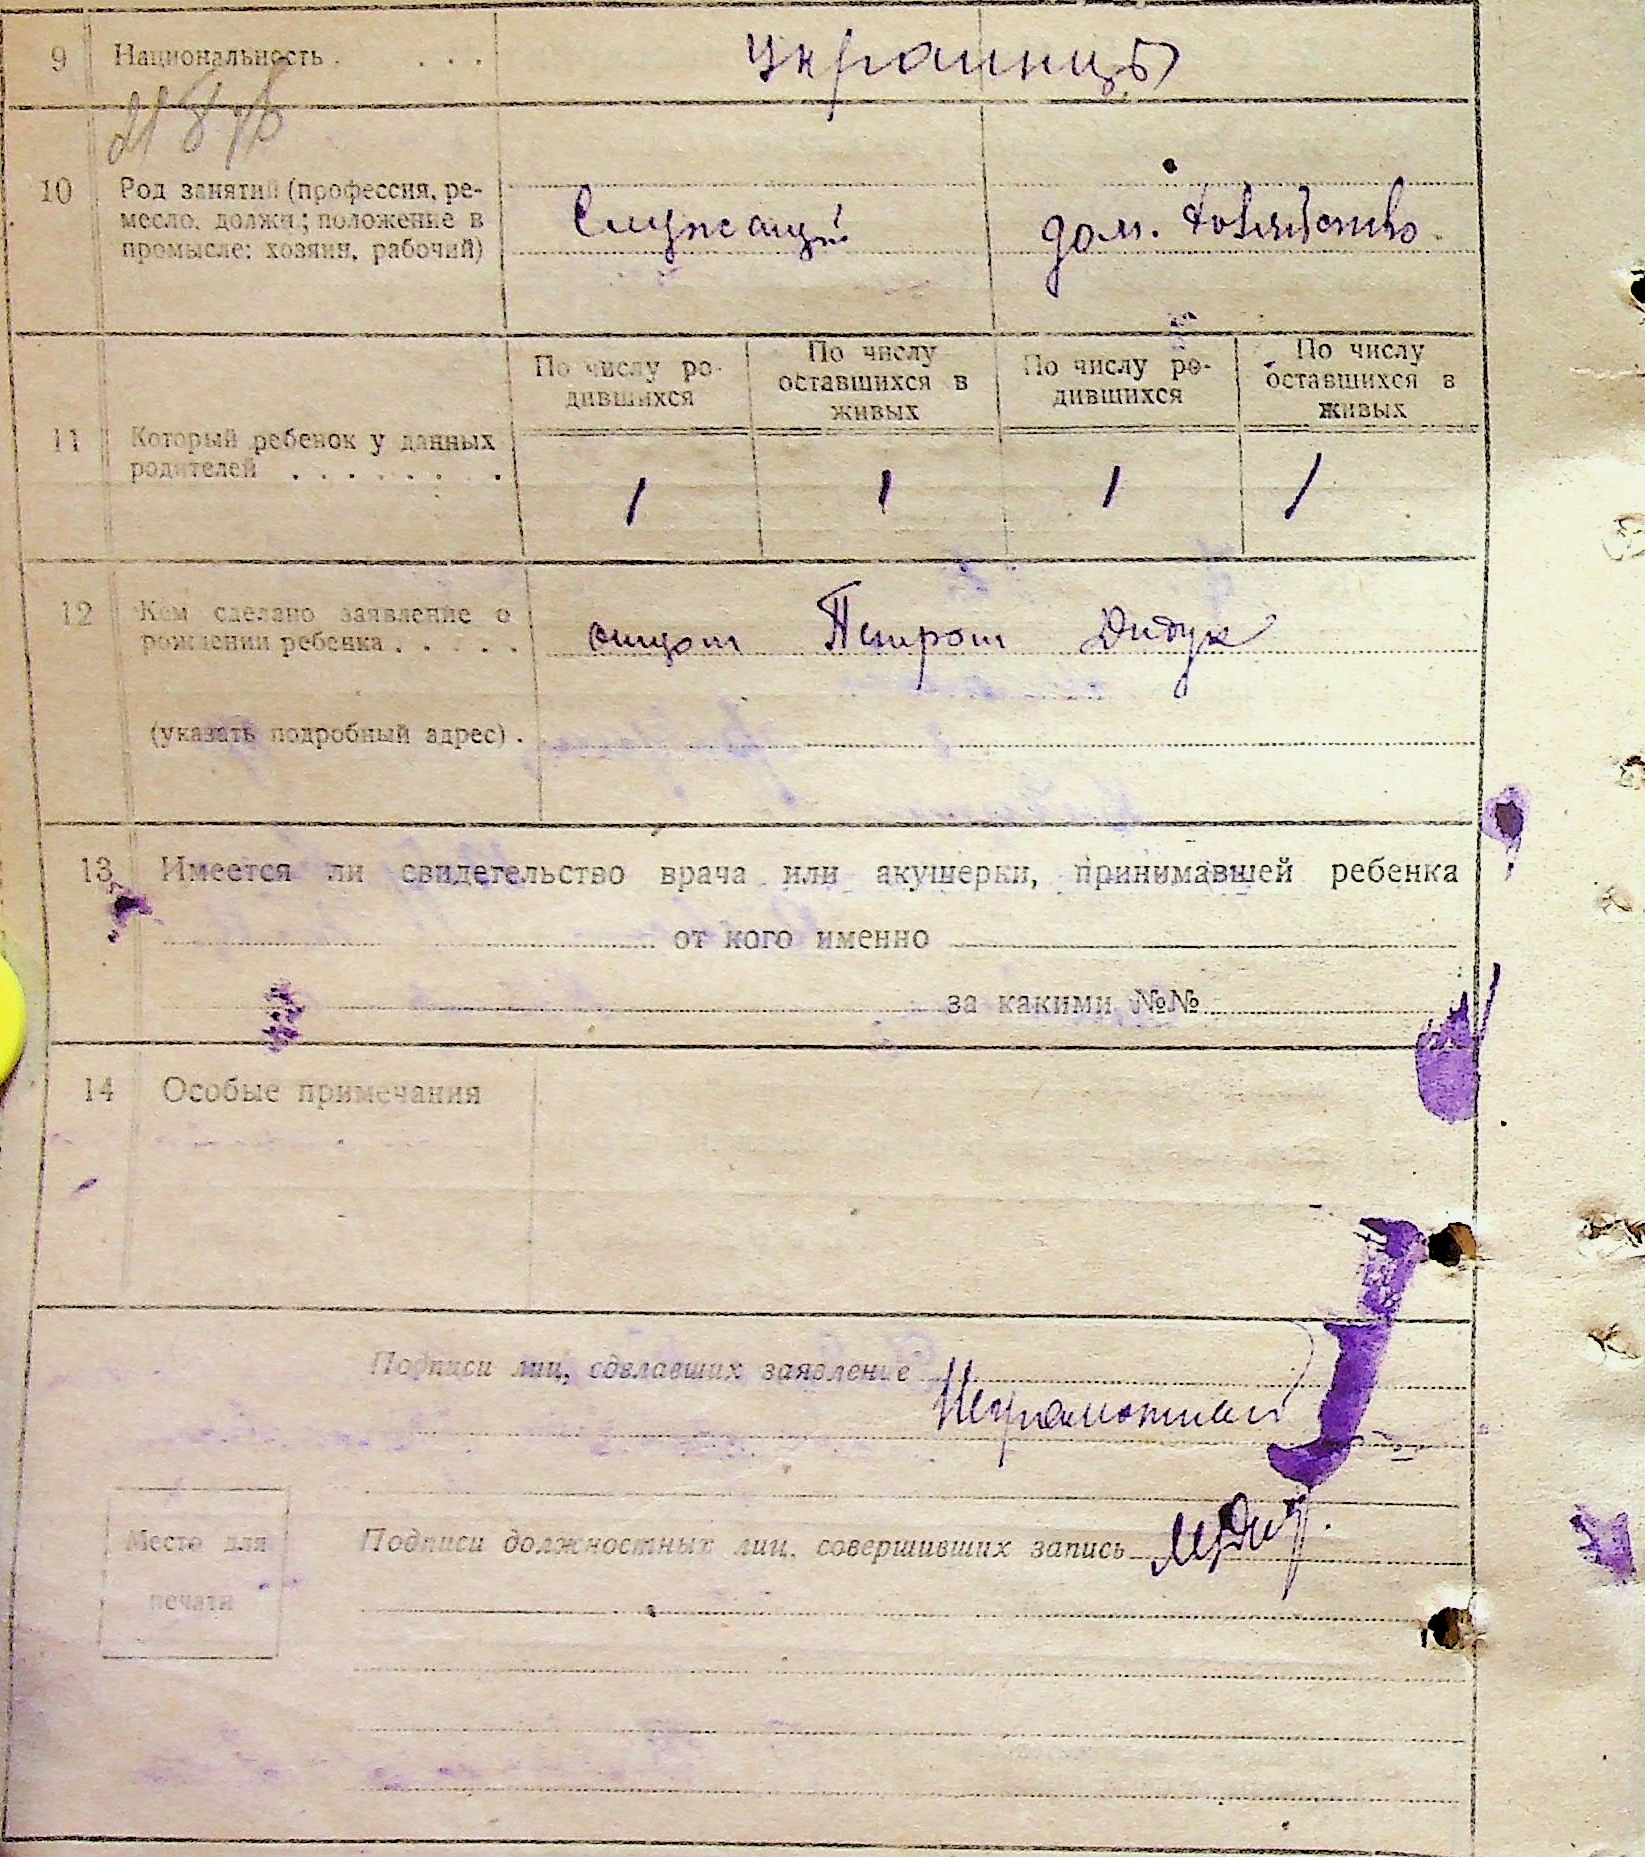 9 Национальность . . . . украинцы
10 Род занятий (профессия, ре-
месло, должн; положение в
промысле: хозяин, рабочий)
Служащий дом.
По числу ро-
дившихся
По числу
оставшихся в
живых
По числу ро-
дившихся
По числу
оставшихся в
живых
11 Который ребенок у данных
родителей . . . . . . . .
1 1 1 1
12 Кем сделано заявление о
рождении ребенка . . . . . отцом Петром Дидук
(указать подробный адрес) .
13 Имеется ли свидетельство врача или акушерки, принимавшей ребенка
от кого именно
за какими №№
14 Особые примечания
Подписи лиц, сделавших заявление
Неграмотный
Место для
печати
Подписи должностных лиц, совершивших запись